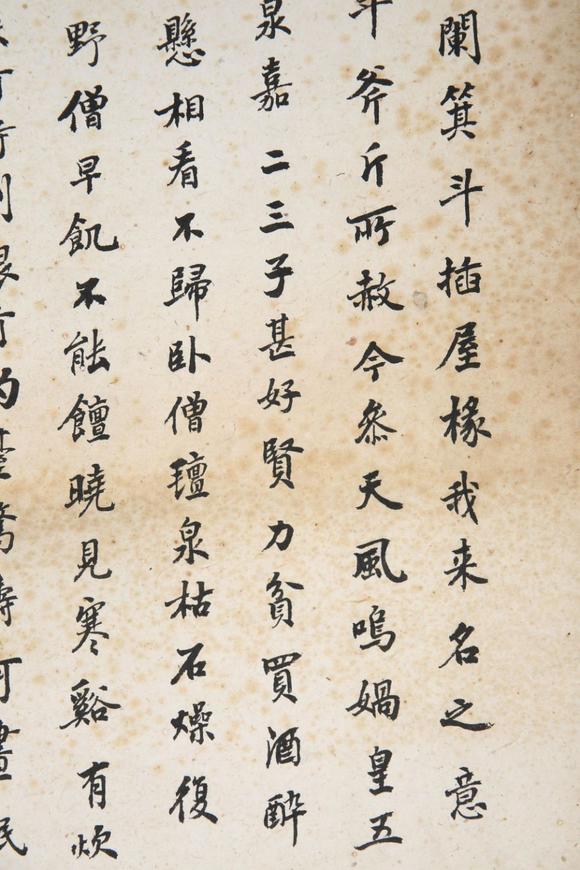 闌箕斗插屋椽我来名之意
斧斤所赦今叅天風嗚媧皇五
泉嘉二三子甚好賢力貧買酒醉
懸相看不歸卧僧氊泉枯石燥復
野僧早飢不能饘曉見寒谿有炊